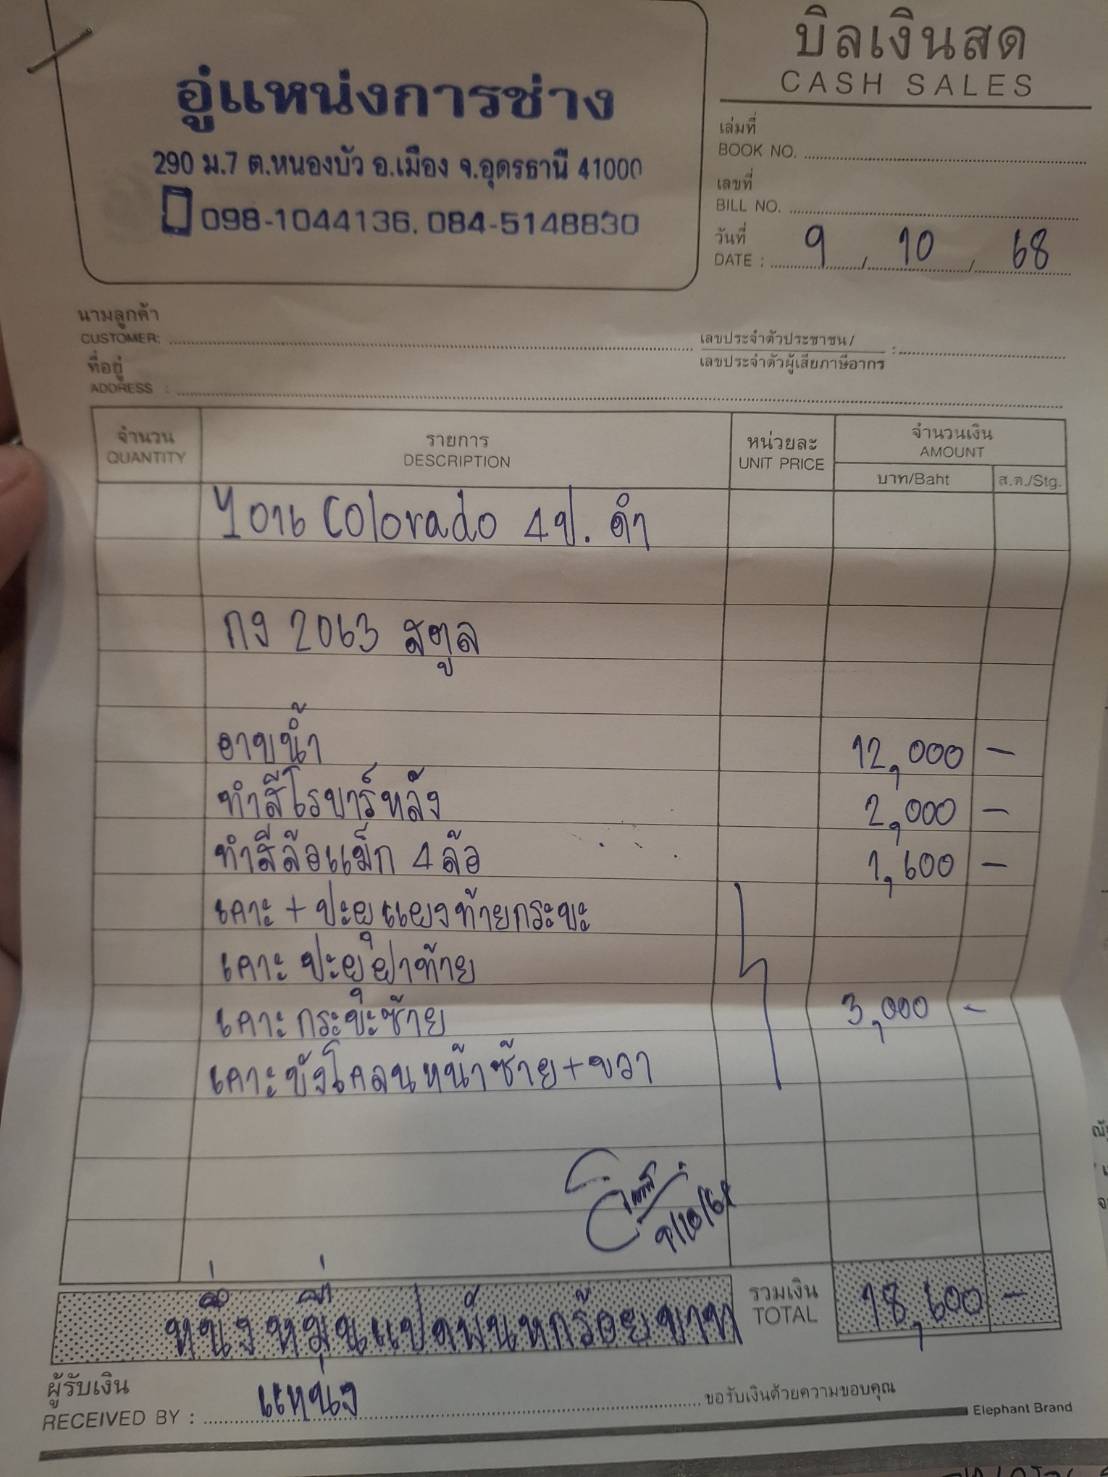 อู่แหน่งการช่าง
290 ม.7 ต.หนองบัว อ.เมือง จ.อุดรธานี 41000
098-1044136, 084-5148830
บิลเงินสด
CASH SALES
เล่มที่
BOOK NO.
เลขที่
BILL NO.
วันที่
DATE : 9 / 10 / 68
นามลูกค้า
CUSTOMER:
เลขประจำตัวประชาชน/
เลขประจำตัวผู้เสียภาษีอากร :
ที่อยู่
ADDRESS :
จำนวน รายการ หน่วยละ จำนวนเงิน
QUANTITY DESCRIPTION UNIT PRICE AMOUNT
บาท/Baht ส.ต./Stg.
Colorado 4ป. ดำ
กง 2063 สตูล
อาบน้ำ 12,000 –
ทำสีโรบาร์หลัง 2,000 –
ทำสีล้อแม็ก 4 ล้อ 1,600 –
เคาะ + ปะผุแผงท้ายกระบะ
เคาะ ปะผุฝาท้าย
เคาะกระบะซ้าย 3,000 –
เคาะบังโคลนหน้าซ้าย+ขวา
9/10/68
หนึ่งหมื่นแปดพันหกร้อยบาท
รวมเงิน
TOTAL 18,600 –
ผู้รับเงิน
RECEIVED BY : แหน่ง
ขอรับเงินด้วยความขอบคุณ
Elephant Brand